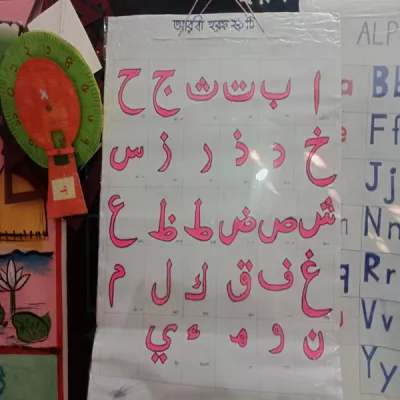 আরবী হরফ ২৯ টি
ا ب ت ث ج ح
خ د ذ ر ز س
ش ص ض ط ظ ع
غ ف ق ك ل م
ن و ه ء ي
ALP
a Bb
e Ff
Jj
Nn
q Rr
Vv
Yy